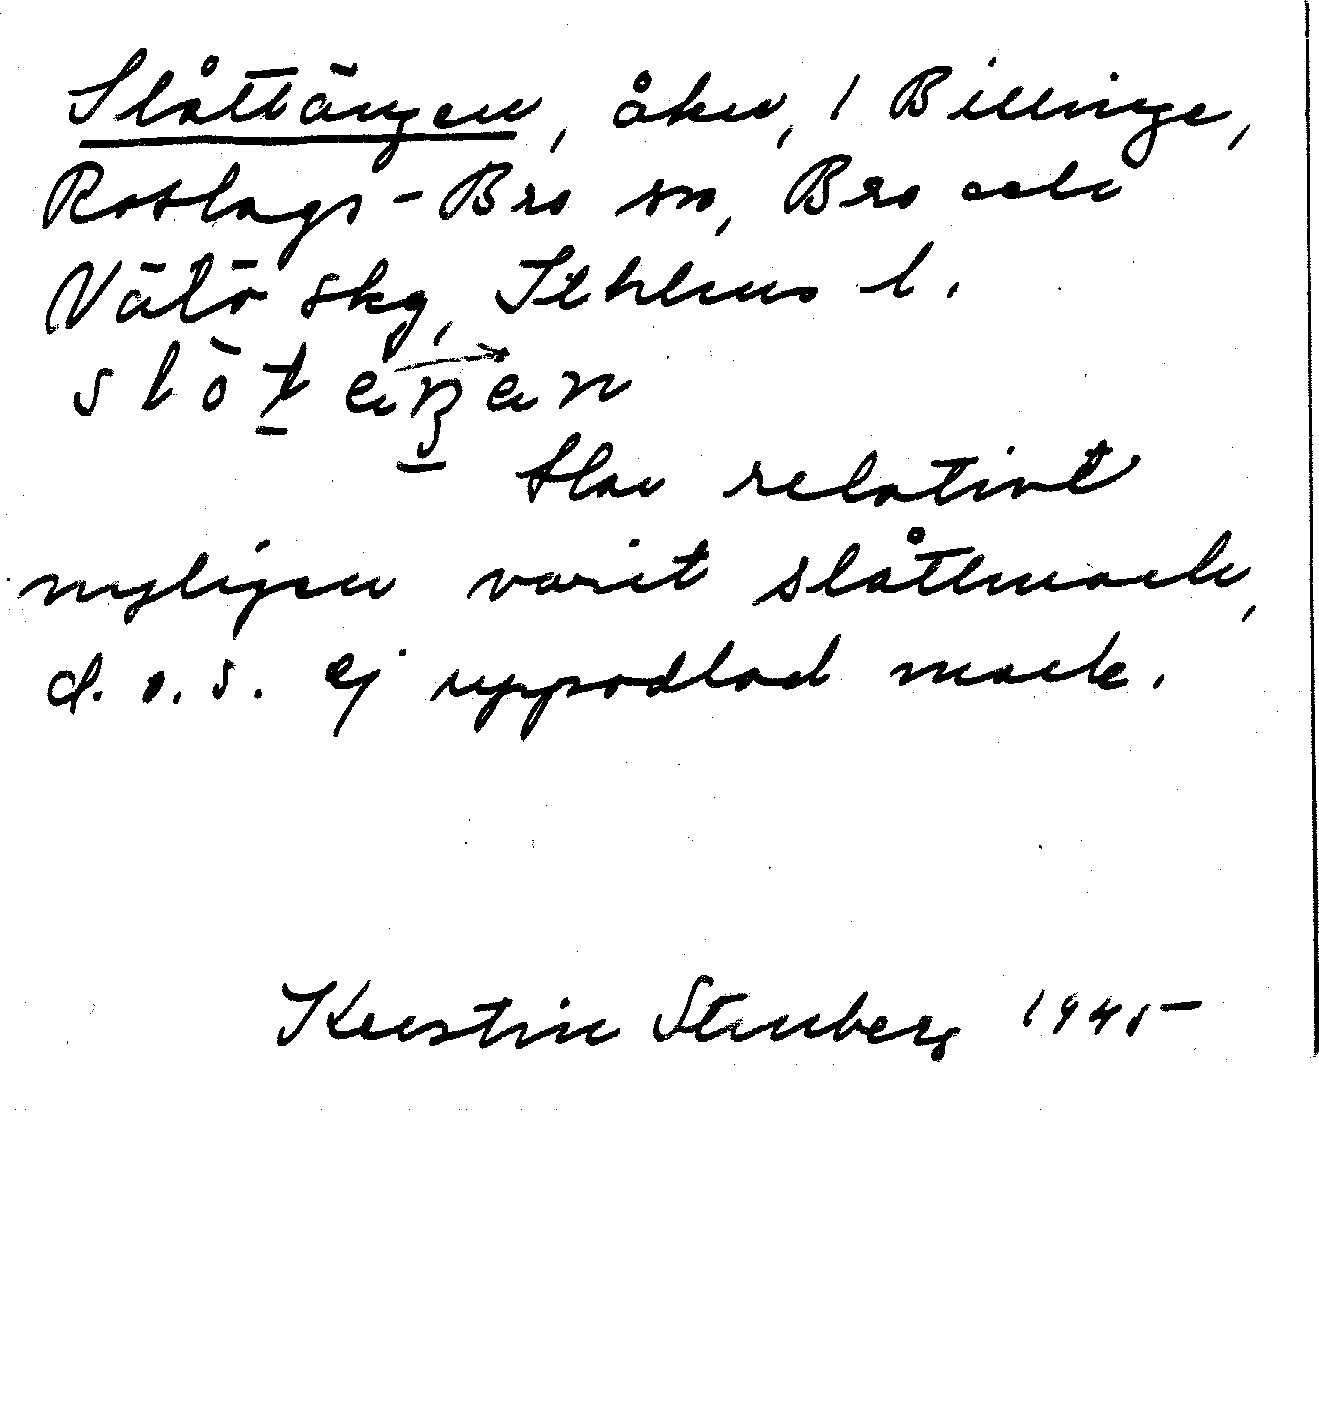 Slåttängen, åker, 1 Billinge,
Roslags-Bro sn, Bro och
Vätö skg, Sthlms l.
Har relativt
nyligen varit slåttmark,
d.v.s. ej uppodlad mark.
Kerstin Stenberg 1945